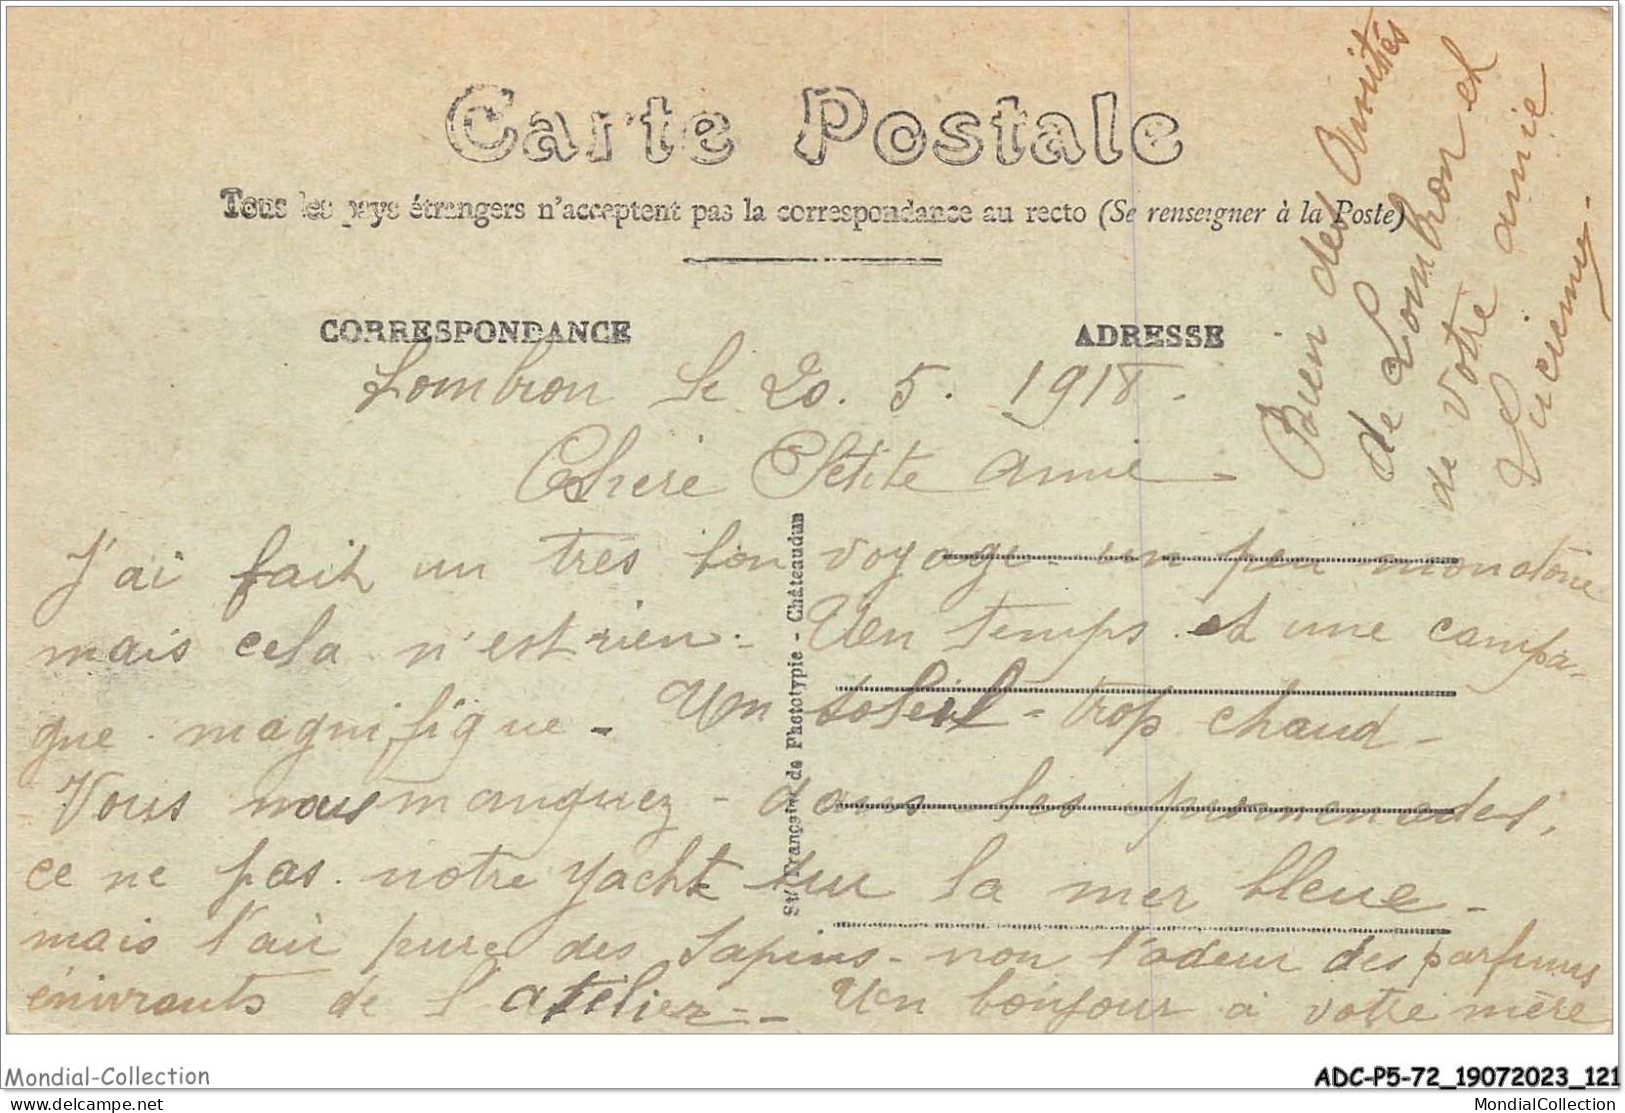 Carte Postale
Tous les pays étrangers n'acceptent pas la correspondance au recto (Se renseigner à la Poste)
CORRESPONDANCE
ADRESSE
Lombron le 20. 5. 1918.
Chere Petite amie -
J'ai fait un tres bon voyage - un peu monotone
mais cela n'est rien - Un temps et une campa-
gne magnifique - Un soleil - trop chaud -
Vous nous manquez - dans les promenades,
ce ne pas notre yacht sur la mer bleue -
mais l'air pure des sapins - non l'odeur des parfums
énivrants de l'atelier - Un bonjour a votre mère
Bien des Amitiés
de Lombron et
de votre amie
Lucienne.
Sté Française de Phototypie - Châteaudun
Mondial-Collection
ADC-P5-72_19072023_121
delcampe.net
MondialCollection